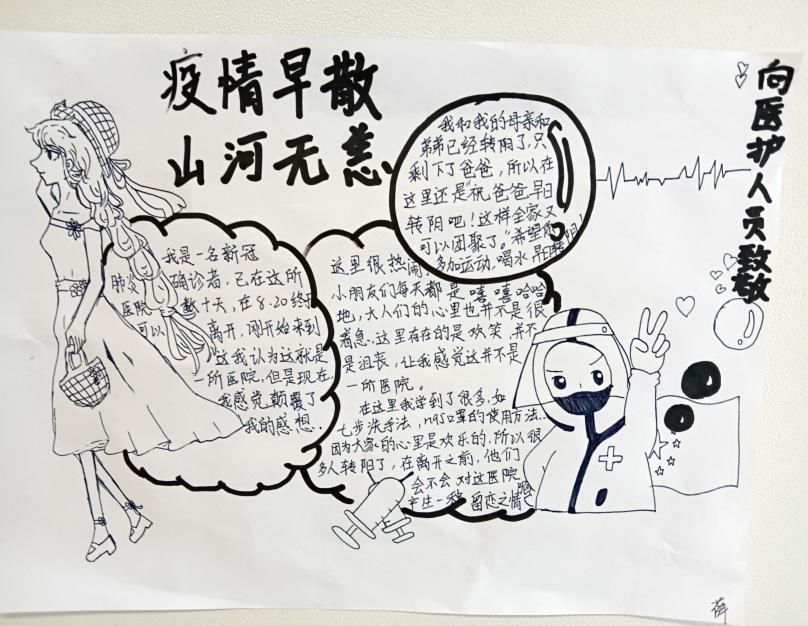 疫情早散
山河无恙
向医护人员致敬
我和我的母亲和
弟弟已经转阳了,只
剩下了爸爸,所以在
这里还是"祝爸爸早日
转阴吧!这样全家又
可以团聚了。"希望你
多加运动,喝水,早日转阴!
我是一名新冠
肺炎确诊者,已在这所
医院数十天,在8.20终于
可以离开,刚开始来到
这我认为这就是
一所医院,但是现在
我感觉颠覆了
我的感想.
这里很热闹,
小朋友们每天都是嘻嘻哈哈
地,大人们的心里也并不是很
着急.这里存在的是欢笑,并不
是沮丧,让我感觉这并不是
一所医院。
在这里我学到了很多,如
七步洗手法,n95口罩的使用方法..
因为大家的心里是欢乐的,所以很
多人转阴了,在离开之前,他们
会不会对这医院
产生一种留恋之情呢